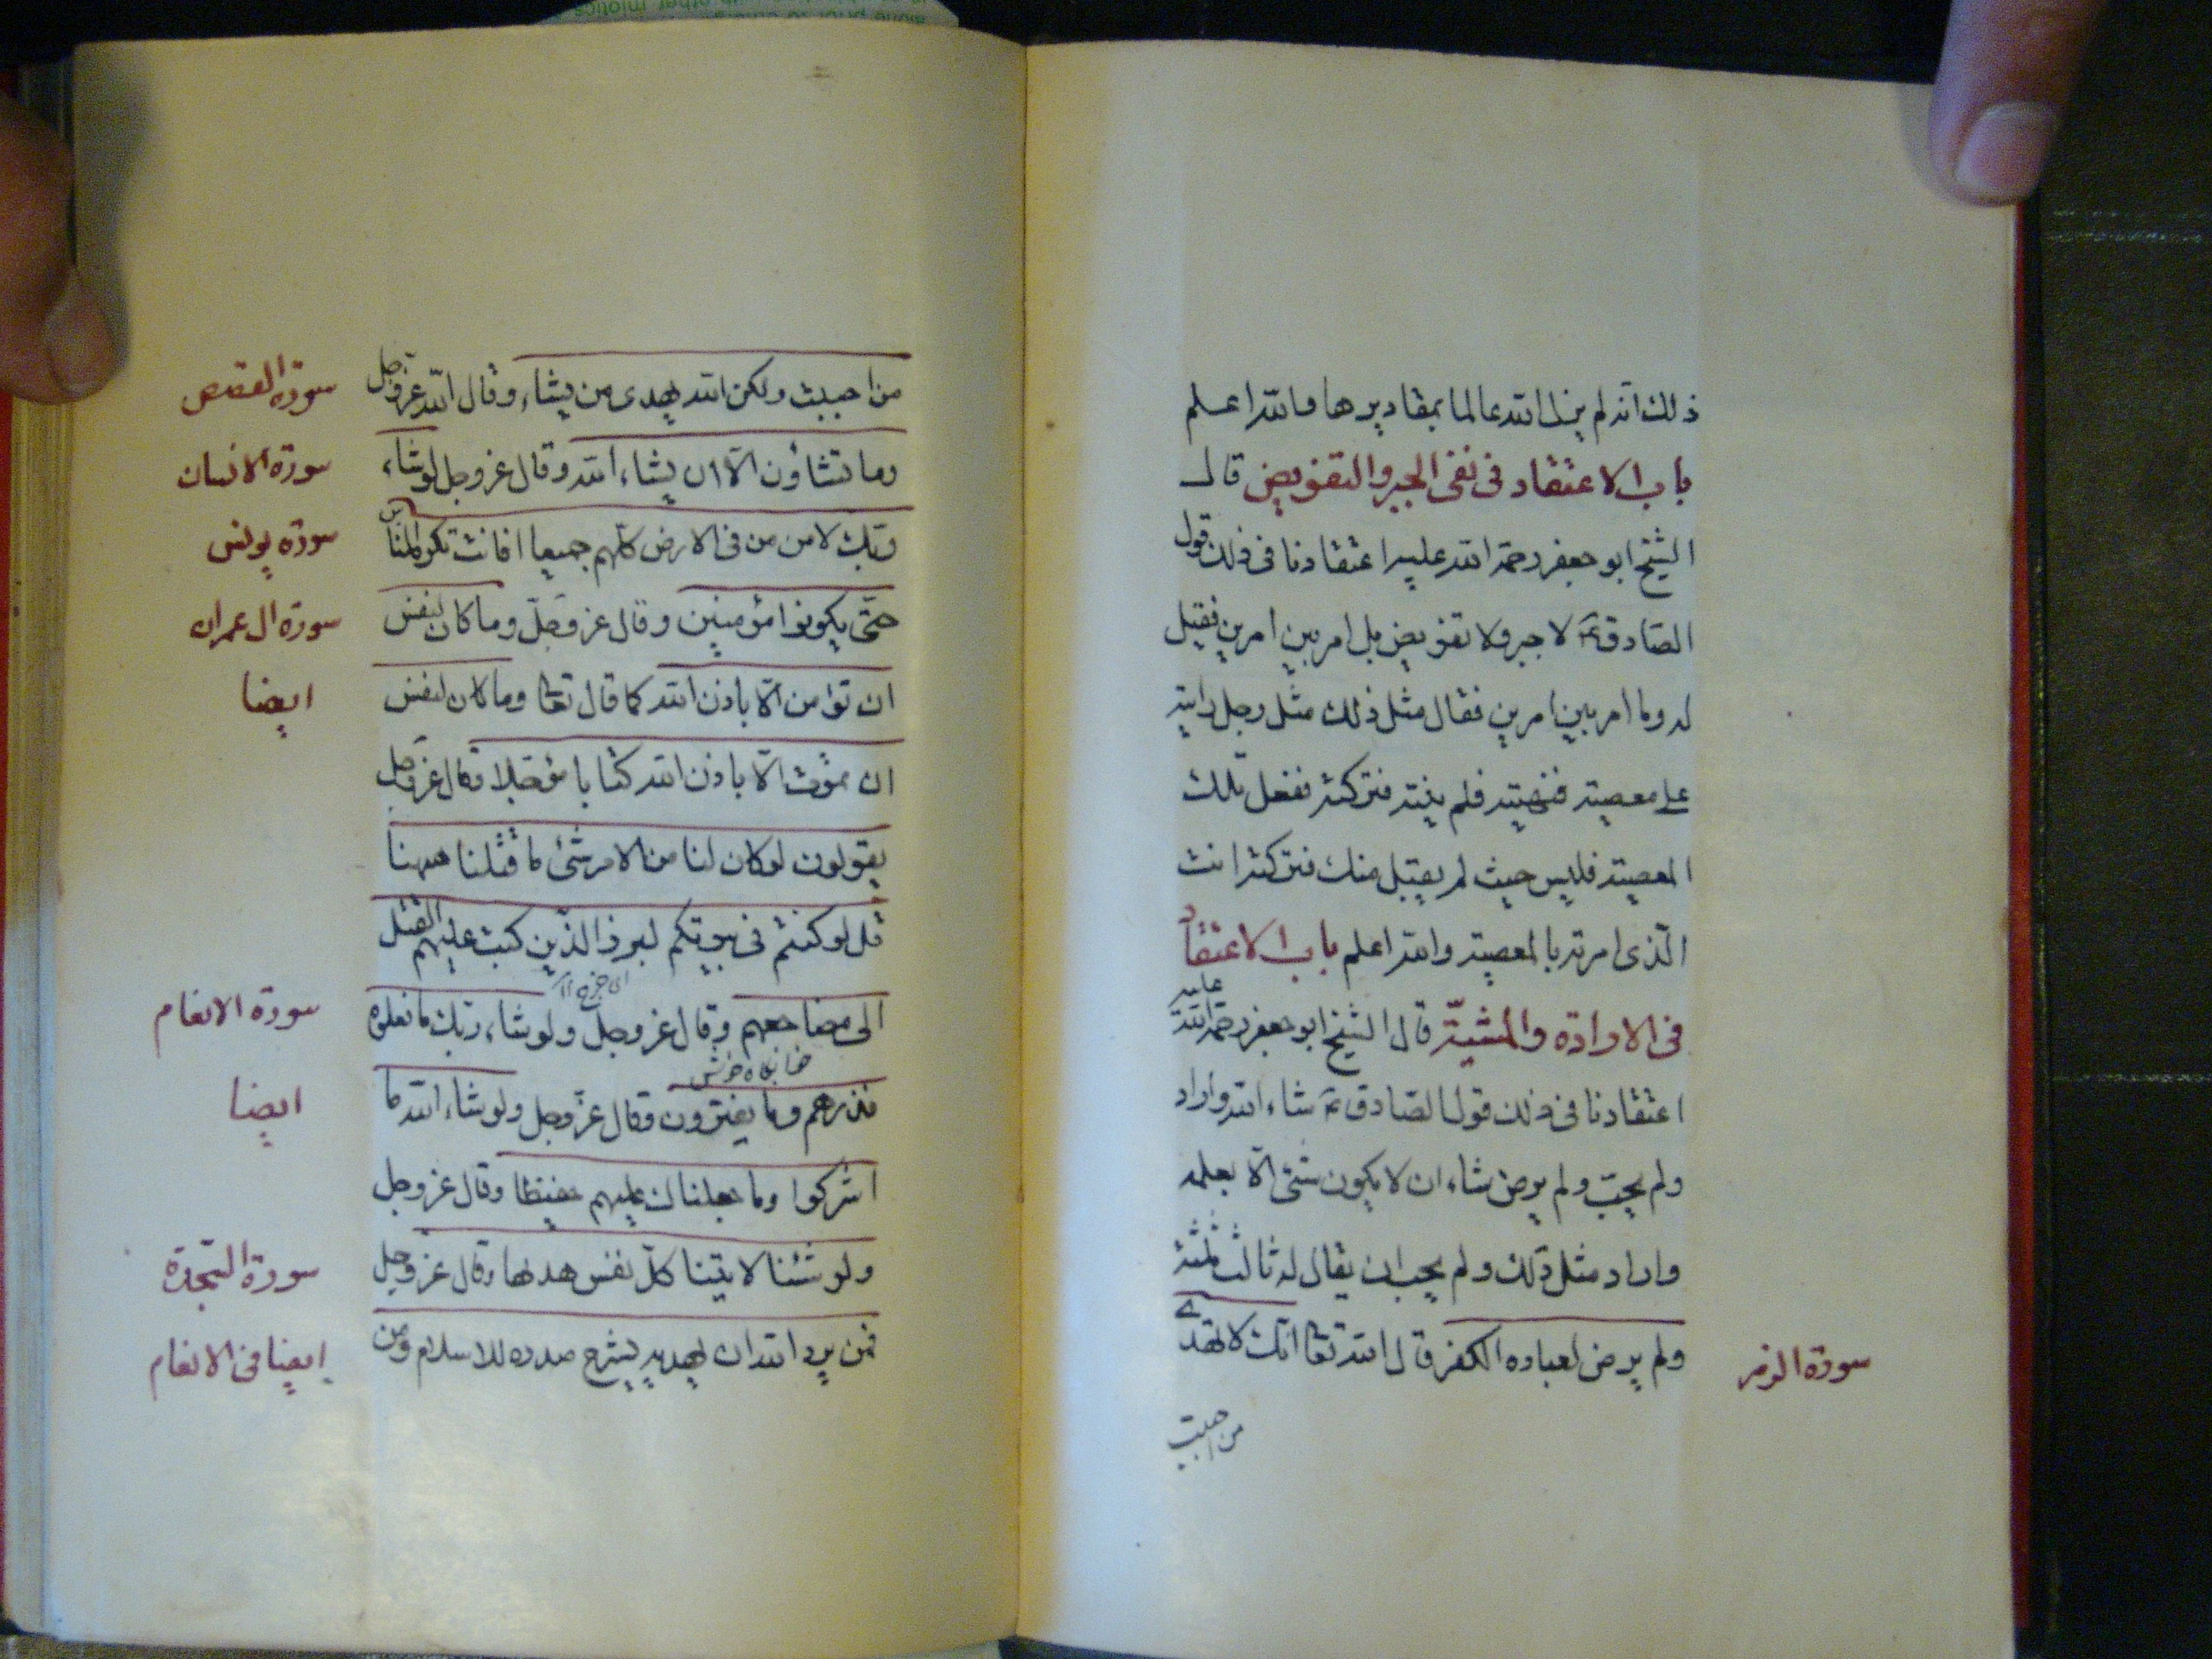 ذلك انه لم يزل الله عالما بمقاديرها والله اعلم
باب الاعتقاد فى نفى الجبر والتفويض قال
الشيخ ابو جعفر رحمة الله عليه اعتقادنا فى ذلك قول
الصادق ع لا جبر ولا تفويض بل امر بين امرين فقيل
له وما امر بين امرين فقال مثل ذلك مثل رجل رايته
على معصية فنهيته فلم ينته فتركته ففعل تلك
المعصية فليس حيث لم يقبل منك فتركته انت
الّذى امرته بالمعصية والله اعلم باب الاعتقاد
فى الارادة والمشيّة قال الشيخ ابو جعفر رحمة الله عليه
اعتقادنا فى ذلك قول الصادق ع شاء الله واراد
ولم يحبّ ولم يرض شاء ان لا يكون شئ الّا بعلمه
واراد مثل ذلك ولم يحب ان يقال له ثالث ثلثة
ولم يرض لعباده الكفر قال الله تعا انّك لا تهدى
سورة الزمر
من احببت
من احببت ولكن الله يهدى من يشاء وقال الله عز وجل
سورة القصص
وما تشاؤن الّا ان يشاء الله وقال عز وجل لو شاء
سورة الانسان
ربّك لامن من فى الارض كلّهم جميعا افانت تكره الناس
سورة يونس
حتّى يكونوا مؤمنين وقال عز وجلّ وما كان لنفس
سورة ال عمران
ان تؤمن الّا باذن الله كما قال تعا وما كان لنفس
ايضا
ان تموت الّا باذن الله كتابا مؤجّلا وقال عز وجل
يقولون لو كان لنا من الامر شئ ما قتلنا ههنا
قل لو كنتم فى بيوتكم لبرز الذين كتب عليهم القتل
الى مضاجعهم وقال عز وجل ولو شاء ربّك ما فعلوه
سورة الانعام
فذرهم وما يفترون وقال عزّ وجل ولو شاء الله ما
ايضا
اشركوا وما جعلناك عليهم حفيظا وقال عز وجل
ولو شئنا لاتينا كلّ نفس هدىها وقال عز وجل
سورة السّجدة
فمن يرد الله ان يهديه يشرح صدره للاسلام ومن
ايضا فى الانعام